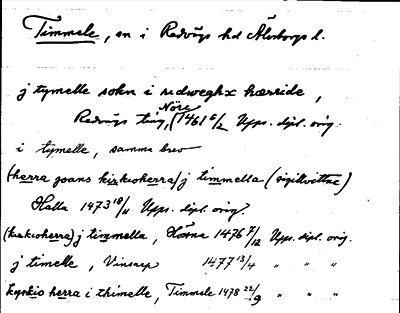 Timmele, sn i Redvägs hd Älvsborgs l.
j tymelle sokn i redweghx hærride,
Nöre
Redvägs ting, 1461 6/2 Upps. dipl. orig.
i tymelle, samma brev
(herra joans kirkioherra) j timmella (sigillvittne)
Halla 1473 18/11 Upps. dipl. orig.
(kirkioherra) j timmella, Hösna 1476 7/12 Upps. dipl. orig.
j timelle, Vinsarp 1477 13/4 " " "
kyrkio herra i thimelle, Timmele 1478 22/9 " " "